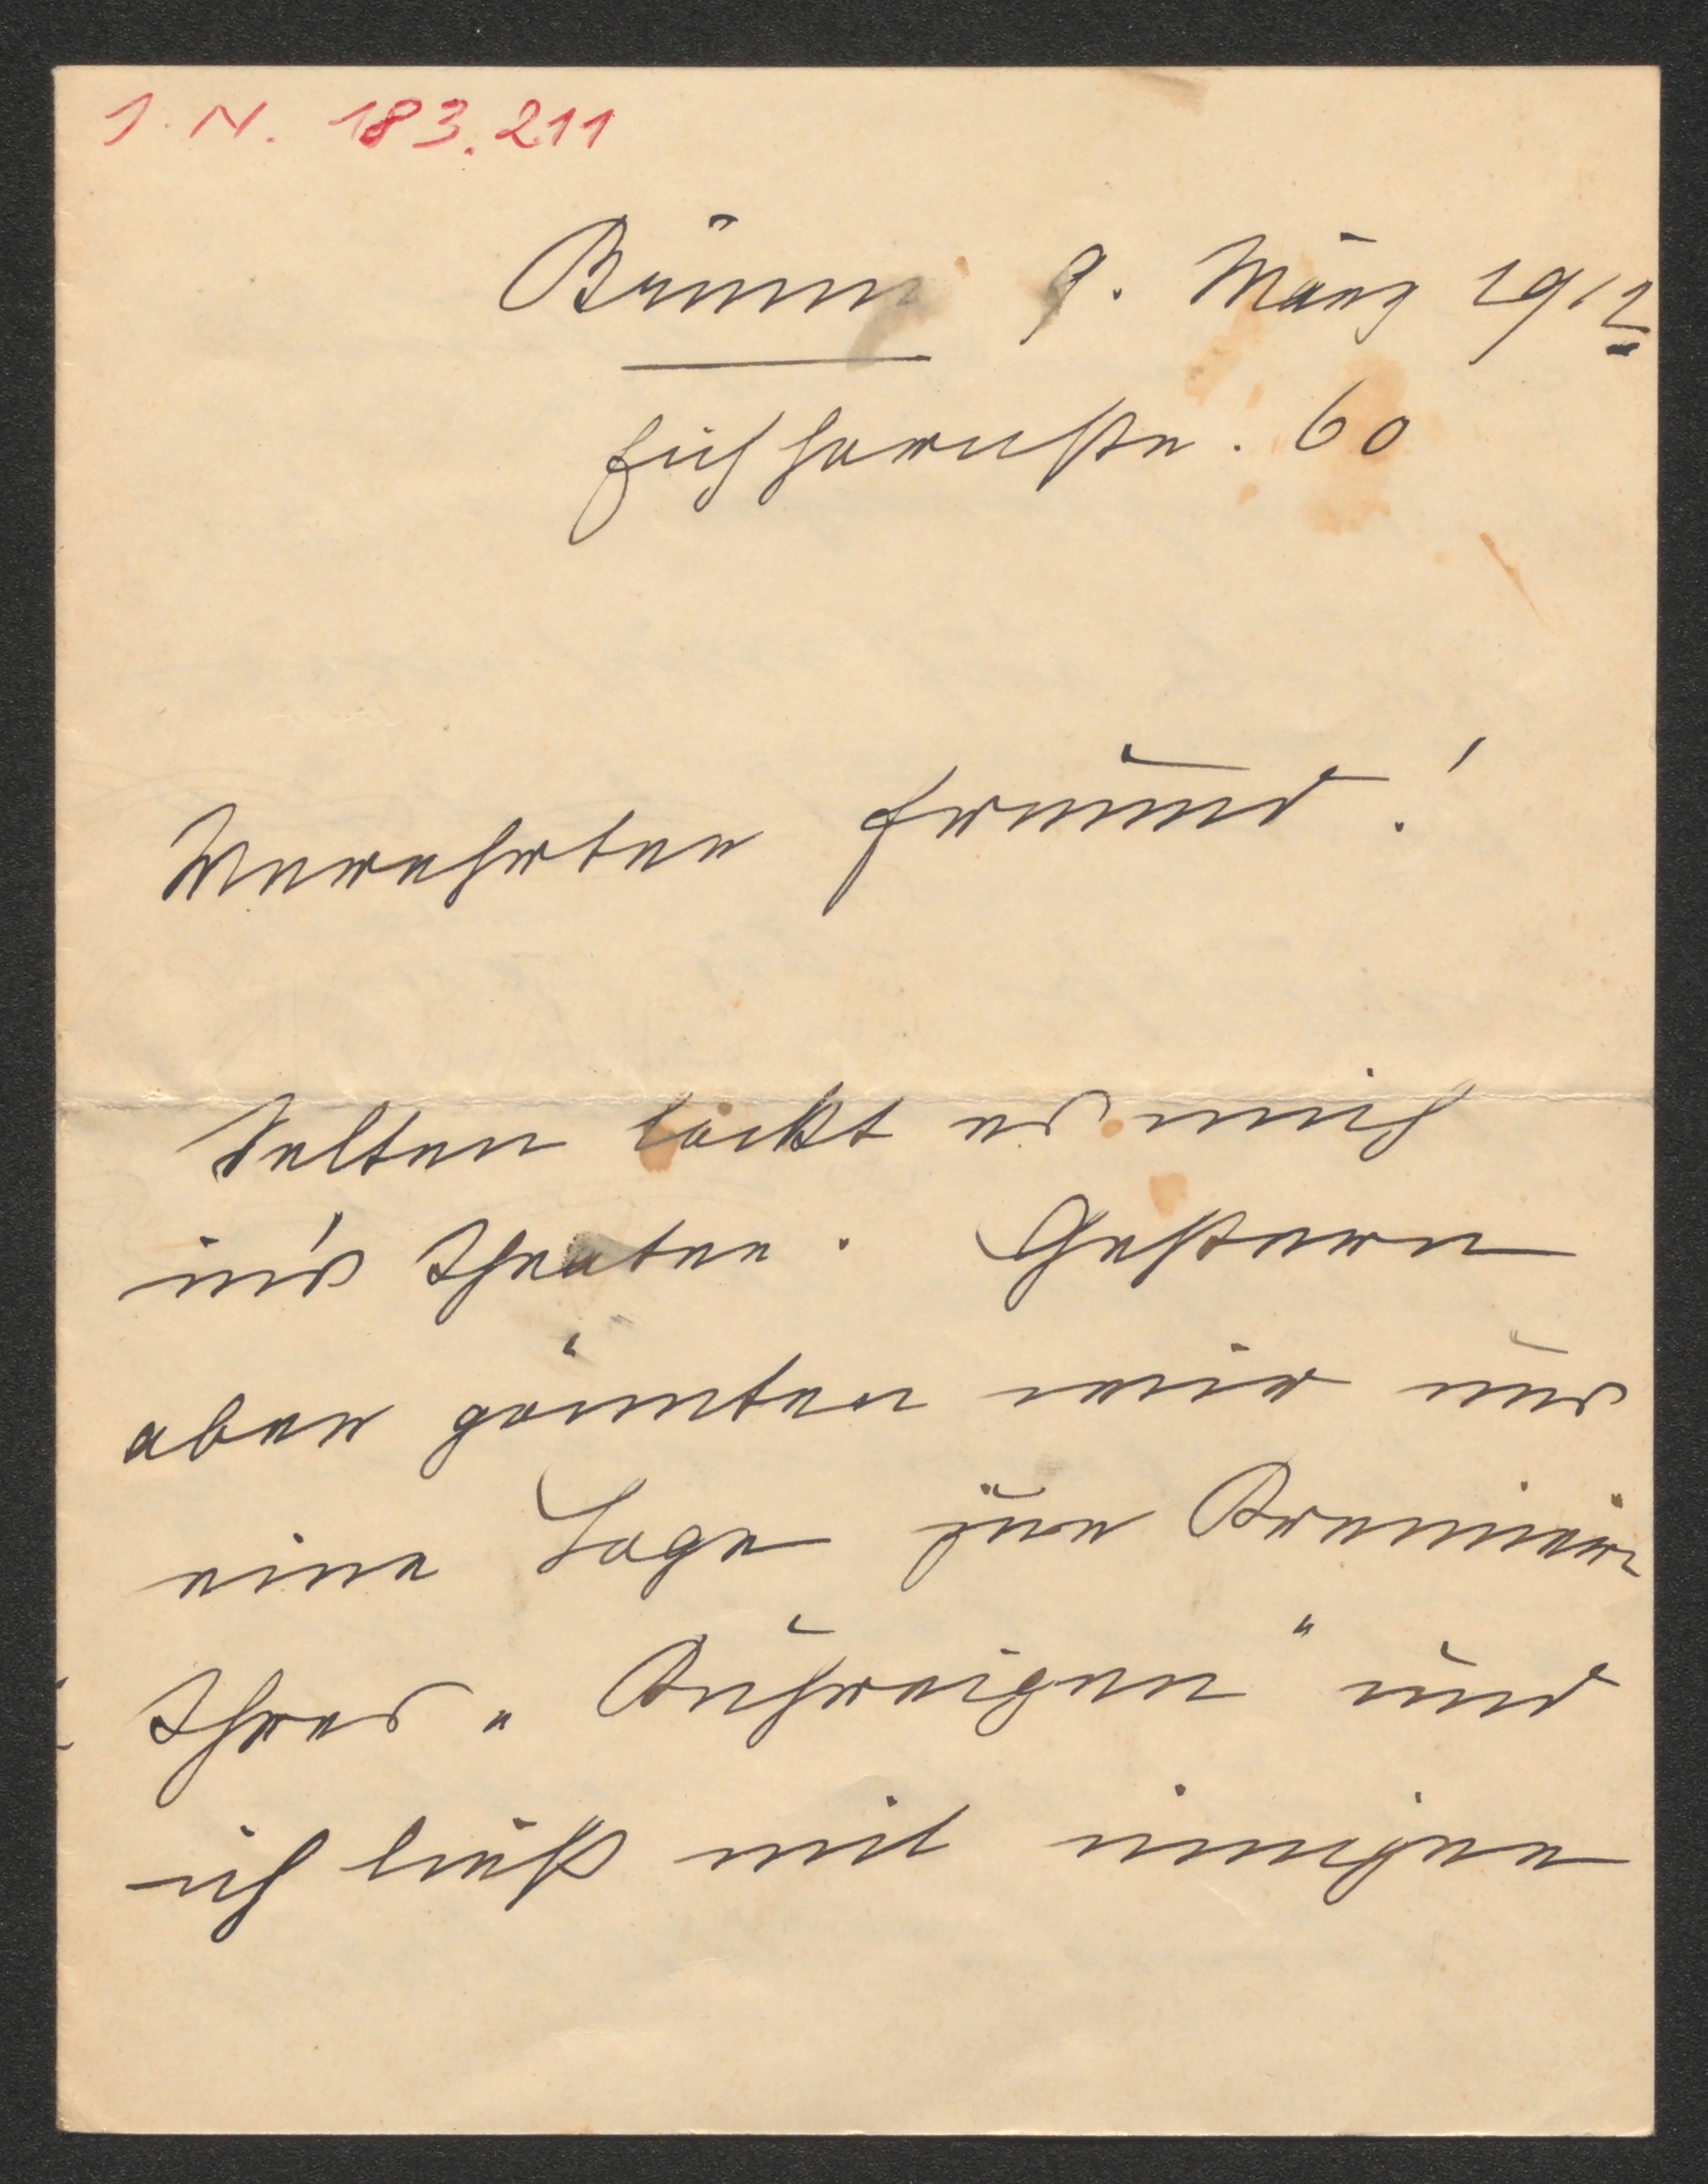 I. N. 183.211
Brünn 9. März 1912
Eichhornstr. 60
Verehrter Freund!
Selten lockt es mich
in's Theater. Gestern
aber gönnten wir uns
eine Loge zur Premièr
Ihres „Kuhreigen" und
ich ließ mit inniger